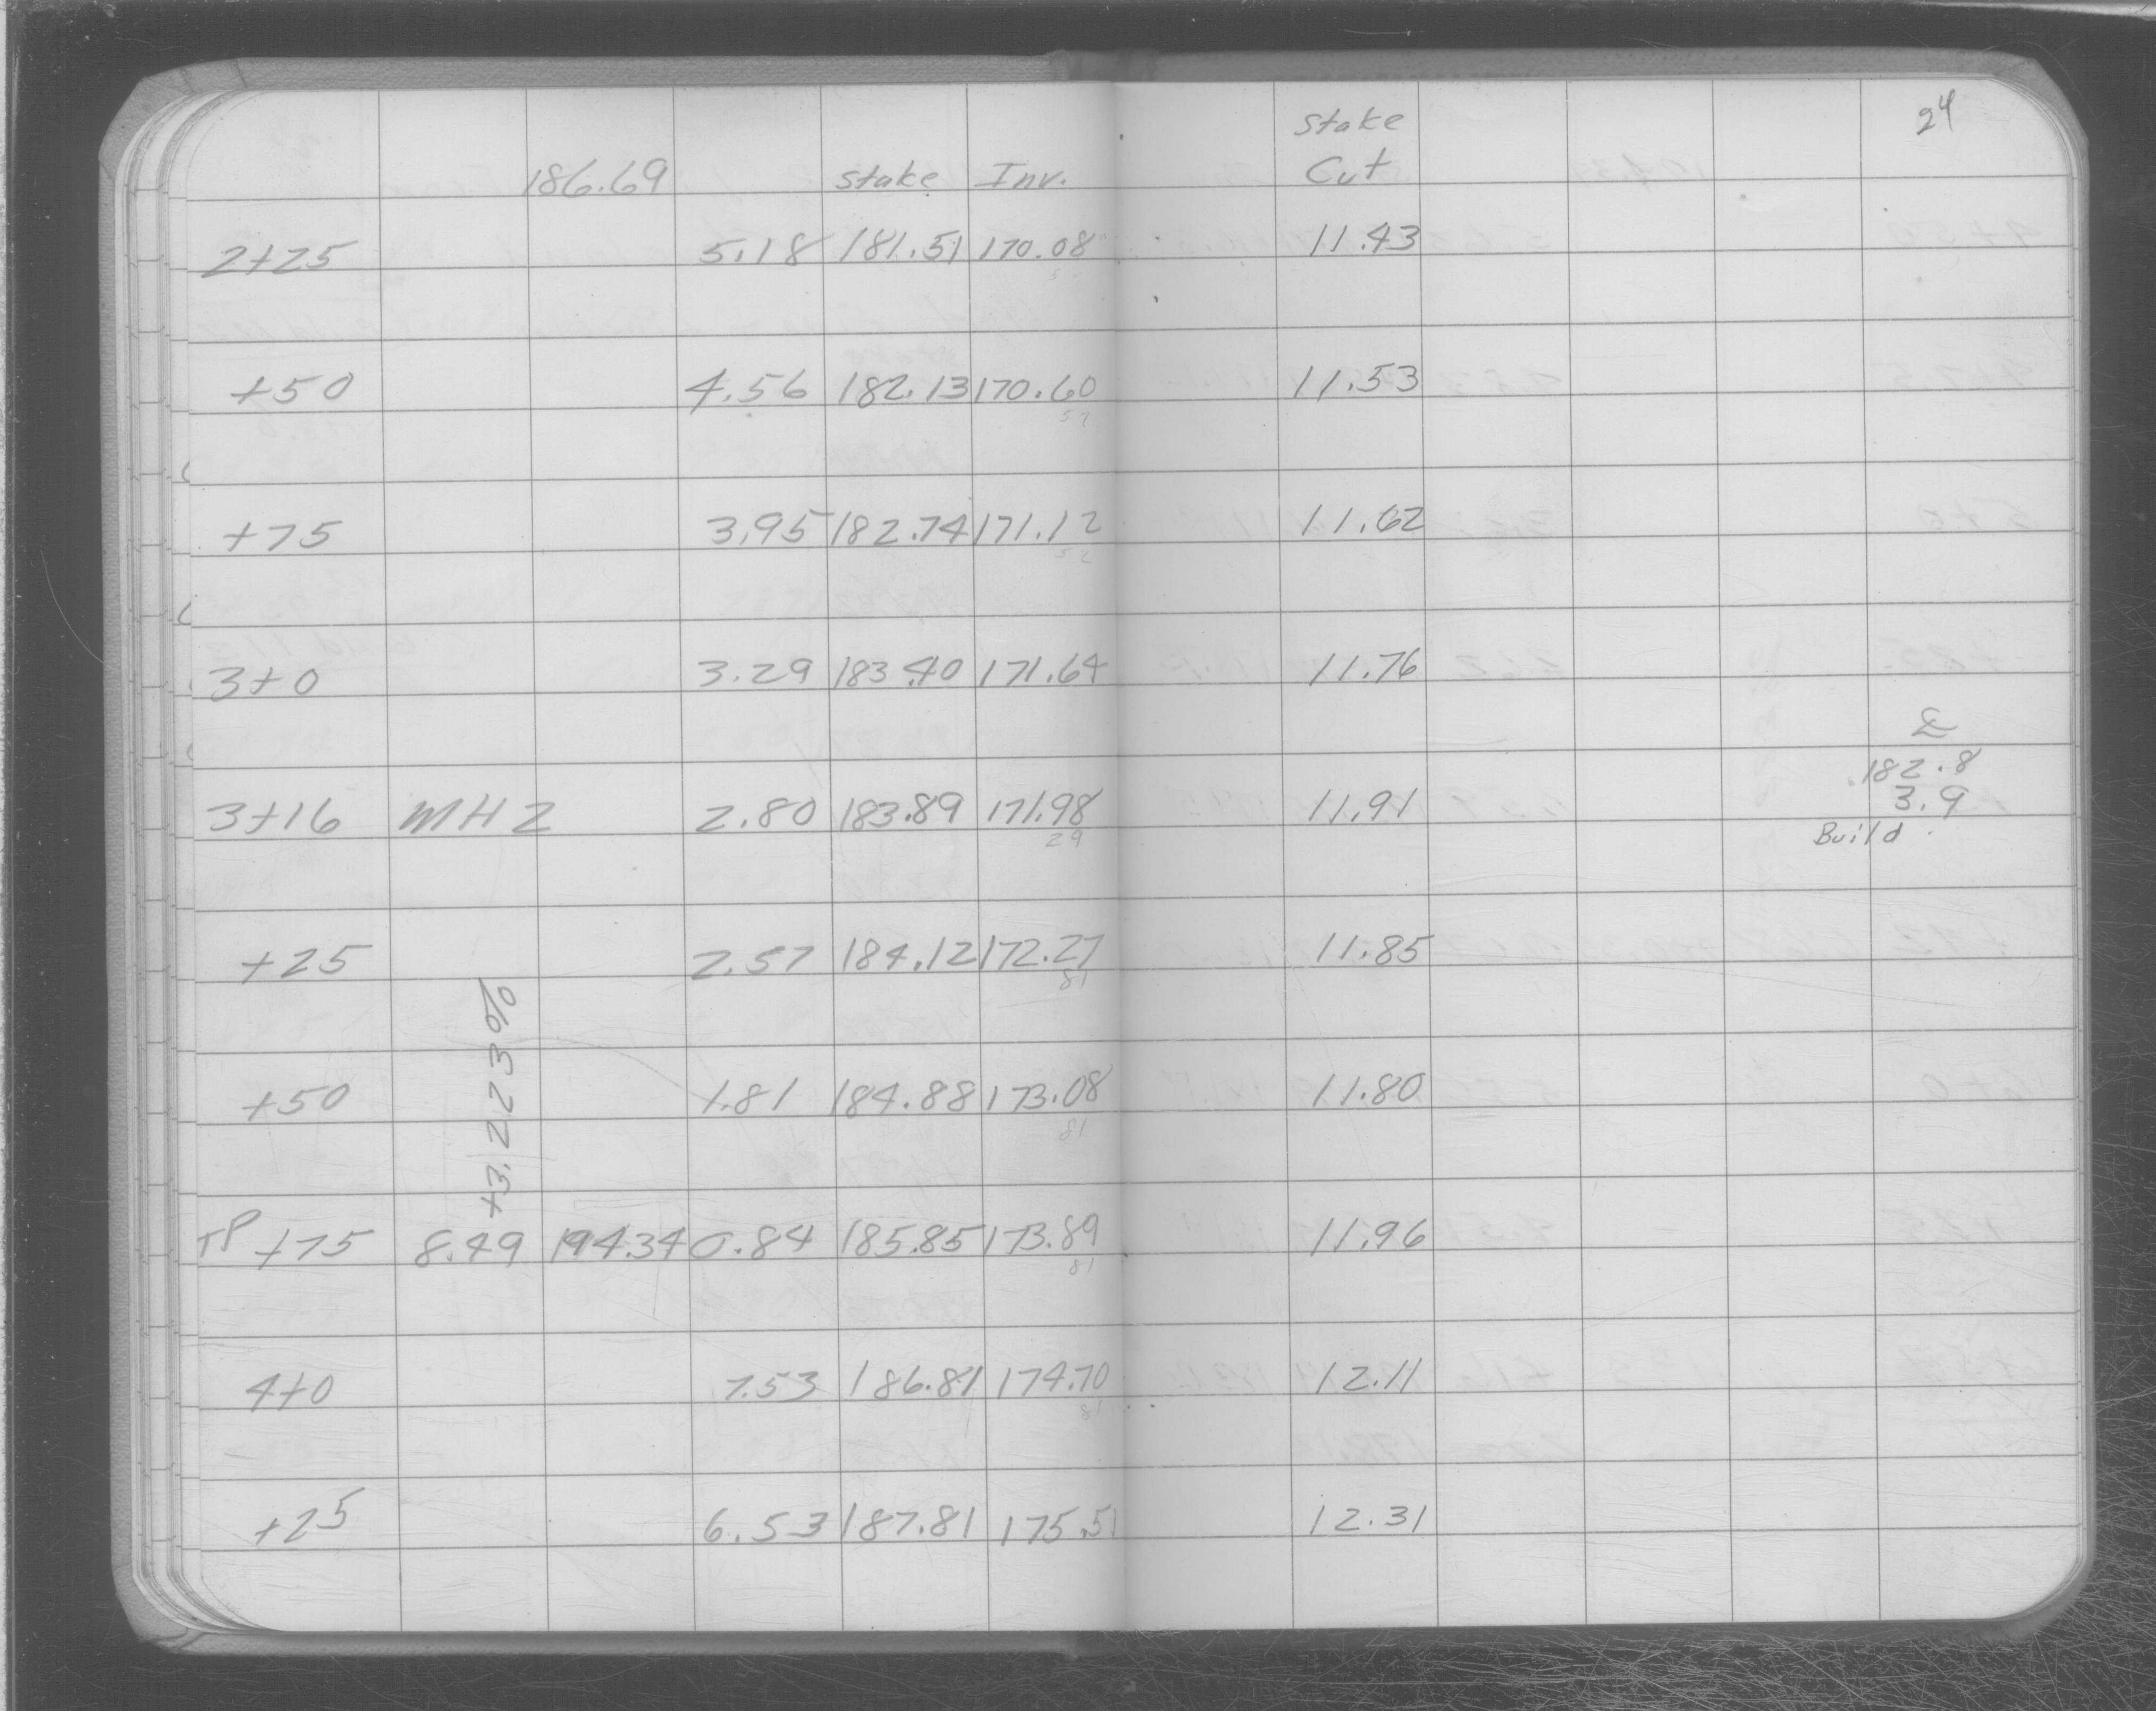 24
Stake
186.69 Stake Inv. Cut
2+25 5.18 181.51 170.08 11.43
+50 4.56 182.13 170.60 11.53
52
+75 3.95 182.74 171.12 11.62
52
3+0 3.29 183.40 171.64 11.76
℄
182.8
3+16 MH2 2.80 183.89 171.98 11.91 3.9
29 Build
+25 2.57 184.12 172.27 11.85
81
+3.223%
+50 1.81 184.88 173.08 11.80
81
TP +75 8.49 194.34 0.84 185.85 173.89 11.96
81
4+0 7.53 186.81 174.70 12.11
81
+25 6.53 187.81 175.51 12.31